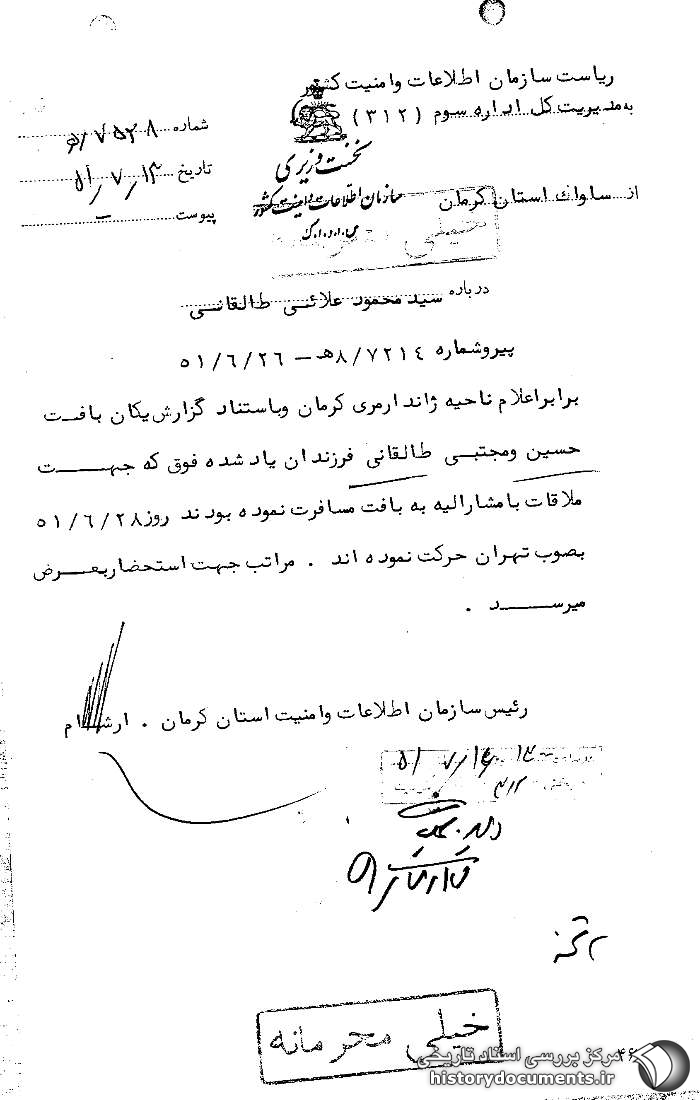 ریاست سازمان اطلاعات وامنیت کشور
به مدیریت کل اداره سوم (۳۱۲)
شماره
تاریخ ۵۱/۷/۱۳
پیوست –
نخست وزیری
سازمان اطلاعات و امنیت کشور
س.ا.و.ا.ک
از ساواك استان کرمان
خیلی
درباره سید محمود علائی طالقانی
پیروشماره ۸/۷۲۱٤هـ – ۵۱/۶/۲۶
برابراعلام ناحیه ژاندارمری کرمان وباستناد گزارش یکان بافت
حسین ومجتبی طالقانی فرزندان یاد شده فوق که جهت
ملاقات بامشارالیه به بافت مسافرت نموده بودند روز ۵۱/۶/۲۸
بصوب تهران حرکت نموده اند . مراتب جهت استحضار بعرض
میرسد .
رئیس سازمان اطلاعات وامنیت استان کرمان . ارشام
۳۱۲
خیلی محرمانه
۴۶
مرکز بررسی اسناد تاریخی
historydocuments.ir